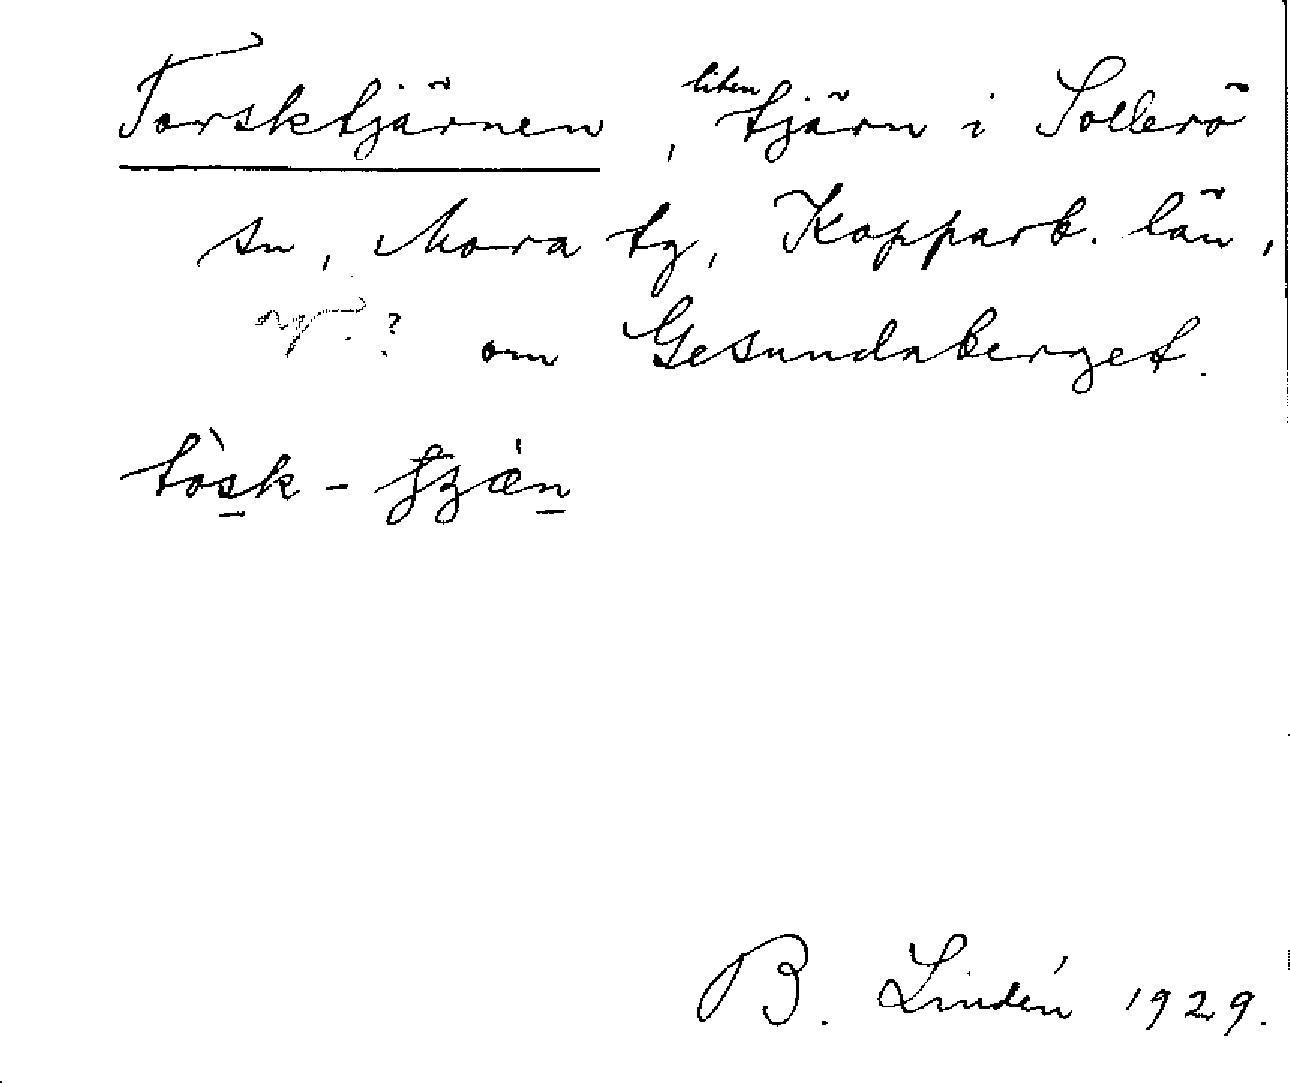 Torsktjärnen, liten tjärn i Sollerö
sn, Mora tg, Kopparb. län,
? om Gesundaberget.
tòsk-
B. Lindén 1929.